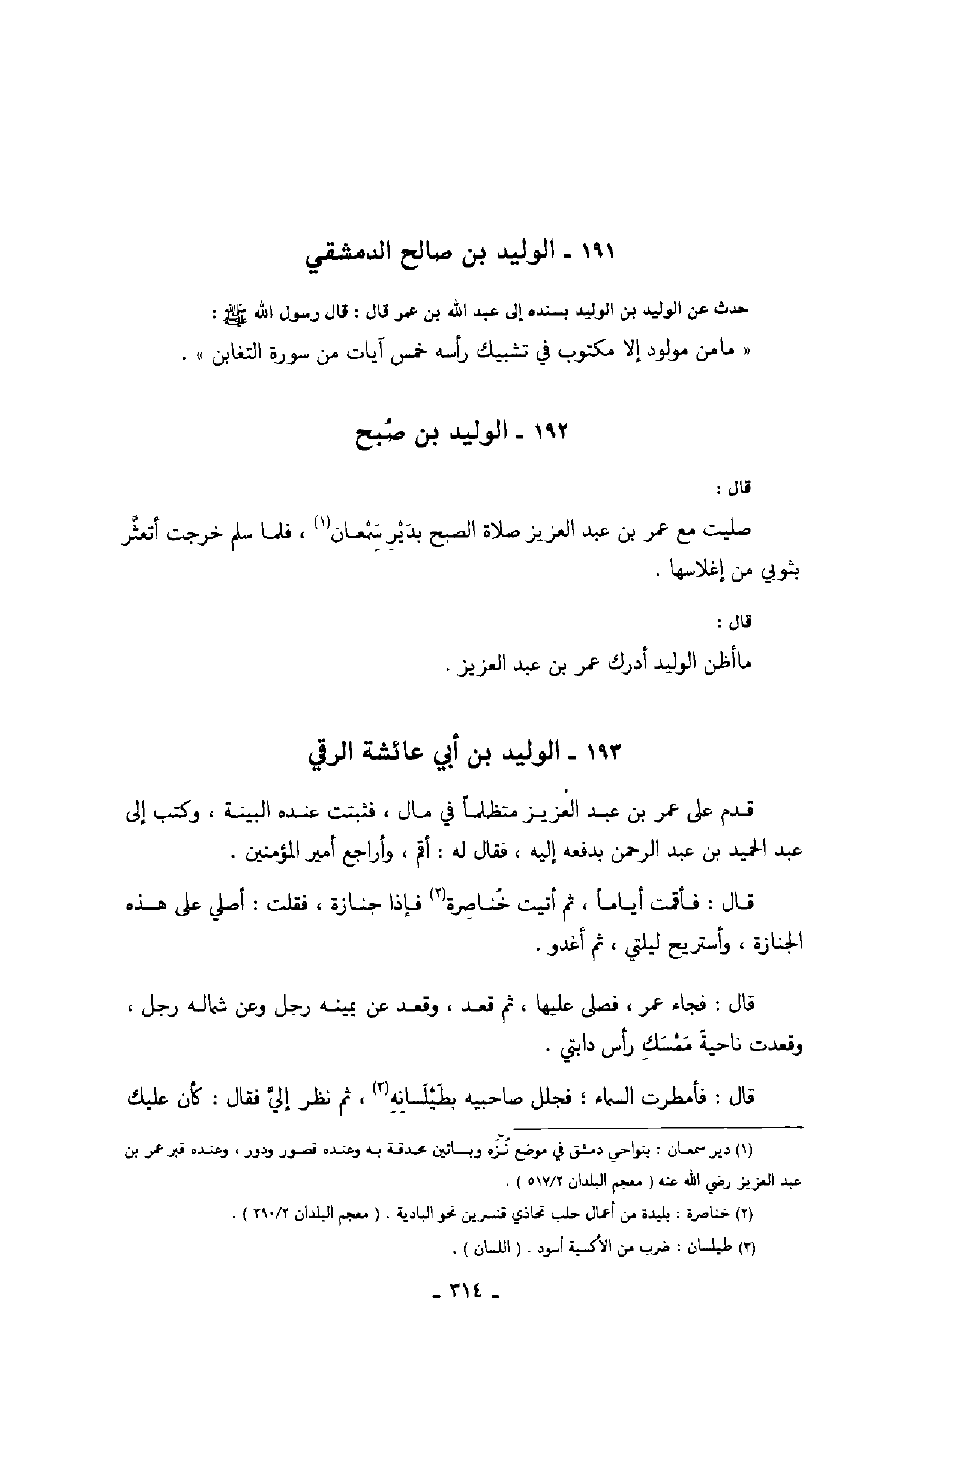 ١٩١ ـ الوليد بن صالح الدمشقي
حدث عن الوليد بن الوليد بسنده إلى عبد الله بن عمر قال : قال رسول الله ﷺ :
« مامن مولود إلا مكتوب في تشبيك رأسه خمس آيات من سورة التغابن » .
١٩٢ ـ الوليد بن صُبح
قال :
صليت مع عمر بن عبد العزيز صلاة الصبح بدَيْرِ سِمْعان(١) ، فلما سلم خرجت أتعثَّر
بثوبي من إغلاسها .
قال :
ماأظن الوليد أدرك عمر بن عبد العزيز .
١٩٣ ـ الوليد بن أبي عائشة الرقي
قدم على عمر بن عبد العزيز متظلماً في مال ، فثبتت عنده البينة ، وكتب إلى
عبد الحميد بن عبد الرحمن بدفعه إليه ، فقال له : أقم ، وأراجع أمير المؤمنين .
قال : فأقمت أياماً ، ثم أتيت خُناصِرة(٢) فإذا جنازة ، فقلت : أصلي على هذه
الجنازة ، وأستريح ليلتي ، ثم أغدو .
قال : فجاء عمر ، فصلى عليها ، ثم قعد ، وقعد عن يمينه رجل وعن شماله رجل ،
وقعدت ناحيةَ مَمْسَكِ رأس دابتي .
قال : فأمطرت السماء ؛ فجلل صاحبيه بطَيْلَسانِهِ(٣) ، ثم نظر إليَّ فقال : كأن عليك
(١) دير سمعان : بنواحي دمشق في موضع نَزِه وبساتين محدقة به وعنده قصور ودور ، وعنده قبر عمر بن
عبد العزيز رضي الله عنه ( معجم البلدان ٥١٧/٢ ) .
(٢) خناصرة : بليدة من أعمال حلب تحاذي قنسرين نحو البادية . ( معجم البلدان ٣٩٠/٢ ) .
(٣) طيلسان : ضرب من الأكسية أسود . ( اللسان ) .
ـ ٣١٤ ـ